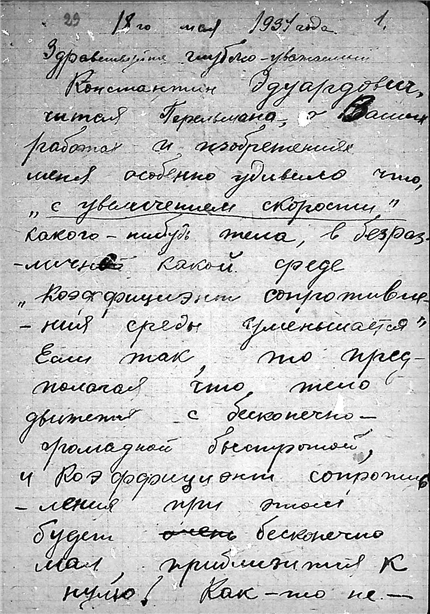 29 18го мая 1931 года 1.
Здравствуйте глубоко-уважаемый
Константин Эдуардович,
читая Перельмана, о Ваших
работах и изобретениях
меня особенно удивило что,
„с увеличением скорости"
какого-нибудь тела, в безраз-
-лично какой среде
„коэффициэнт сопротивле-
-ния среды уменьшается"
Если так, то пред-
полагая что, тело
движется с бесконечно-
громадной быстротой,
и коэффициэнт сопротив-
-ления при этом
будет очень бесконечно
мал, приблизится к
нулю! Как-то не-